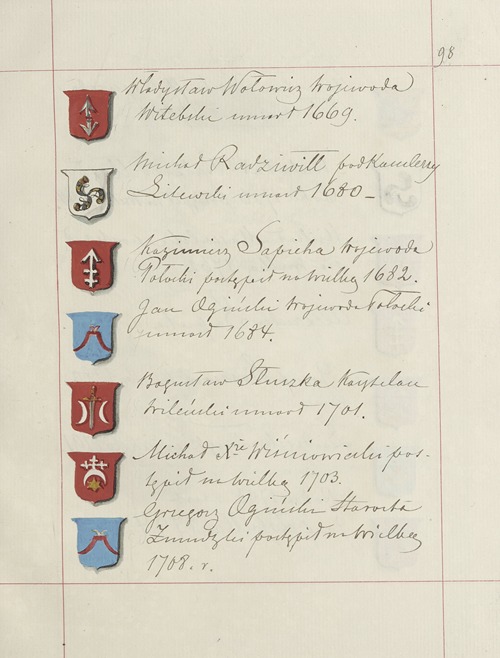 98
Władysław Wołowicz Wojewoda
Witebski umarł 1669.
Michał Radziwiłł podKanclerzy
Litewski umarł 1680 –
Kazimierz Sapieha Wojewoda
Połocki postąpił na Wielką 1682.
Jan Ogiński Wojewoda Połocki
umarł 1684.
Bogusław Słuszka Kasztelan
Wileński umarł 1701.
Michał Xże Wiśniowiecki pos-
tąpił na Wielką 1703.
Grzegorz Ogiński Starosta
Żmudzki postąpił na Wielką
1708. r.